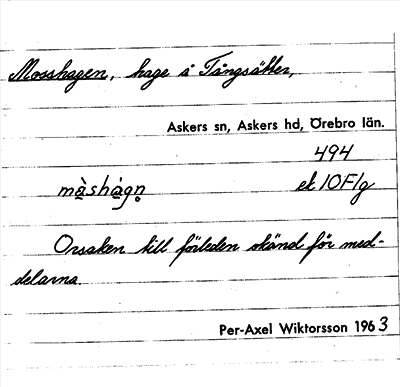 Mosshagen, hage å Tångsätter,
Askers sn, Askers hd, Örebro län.
494
màshàgn̥ ek 10F/g
Orsaken till förleden okänd för med-
delarna.
Per-Axel Wiktorsson 1963